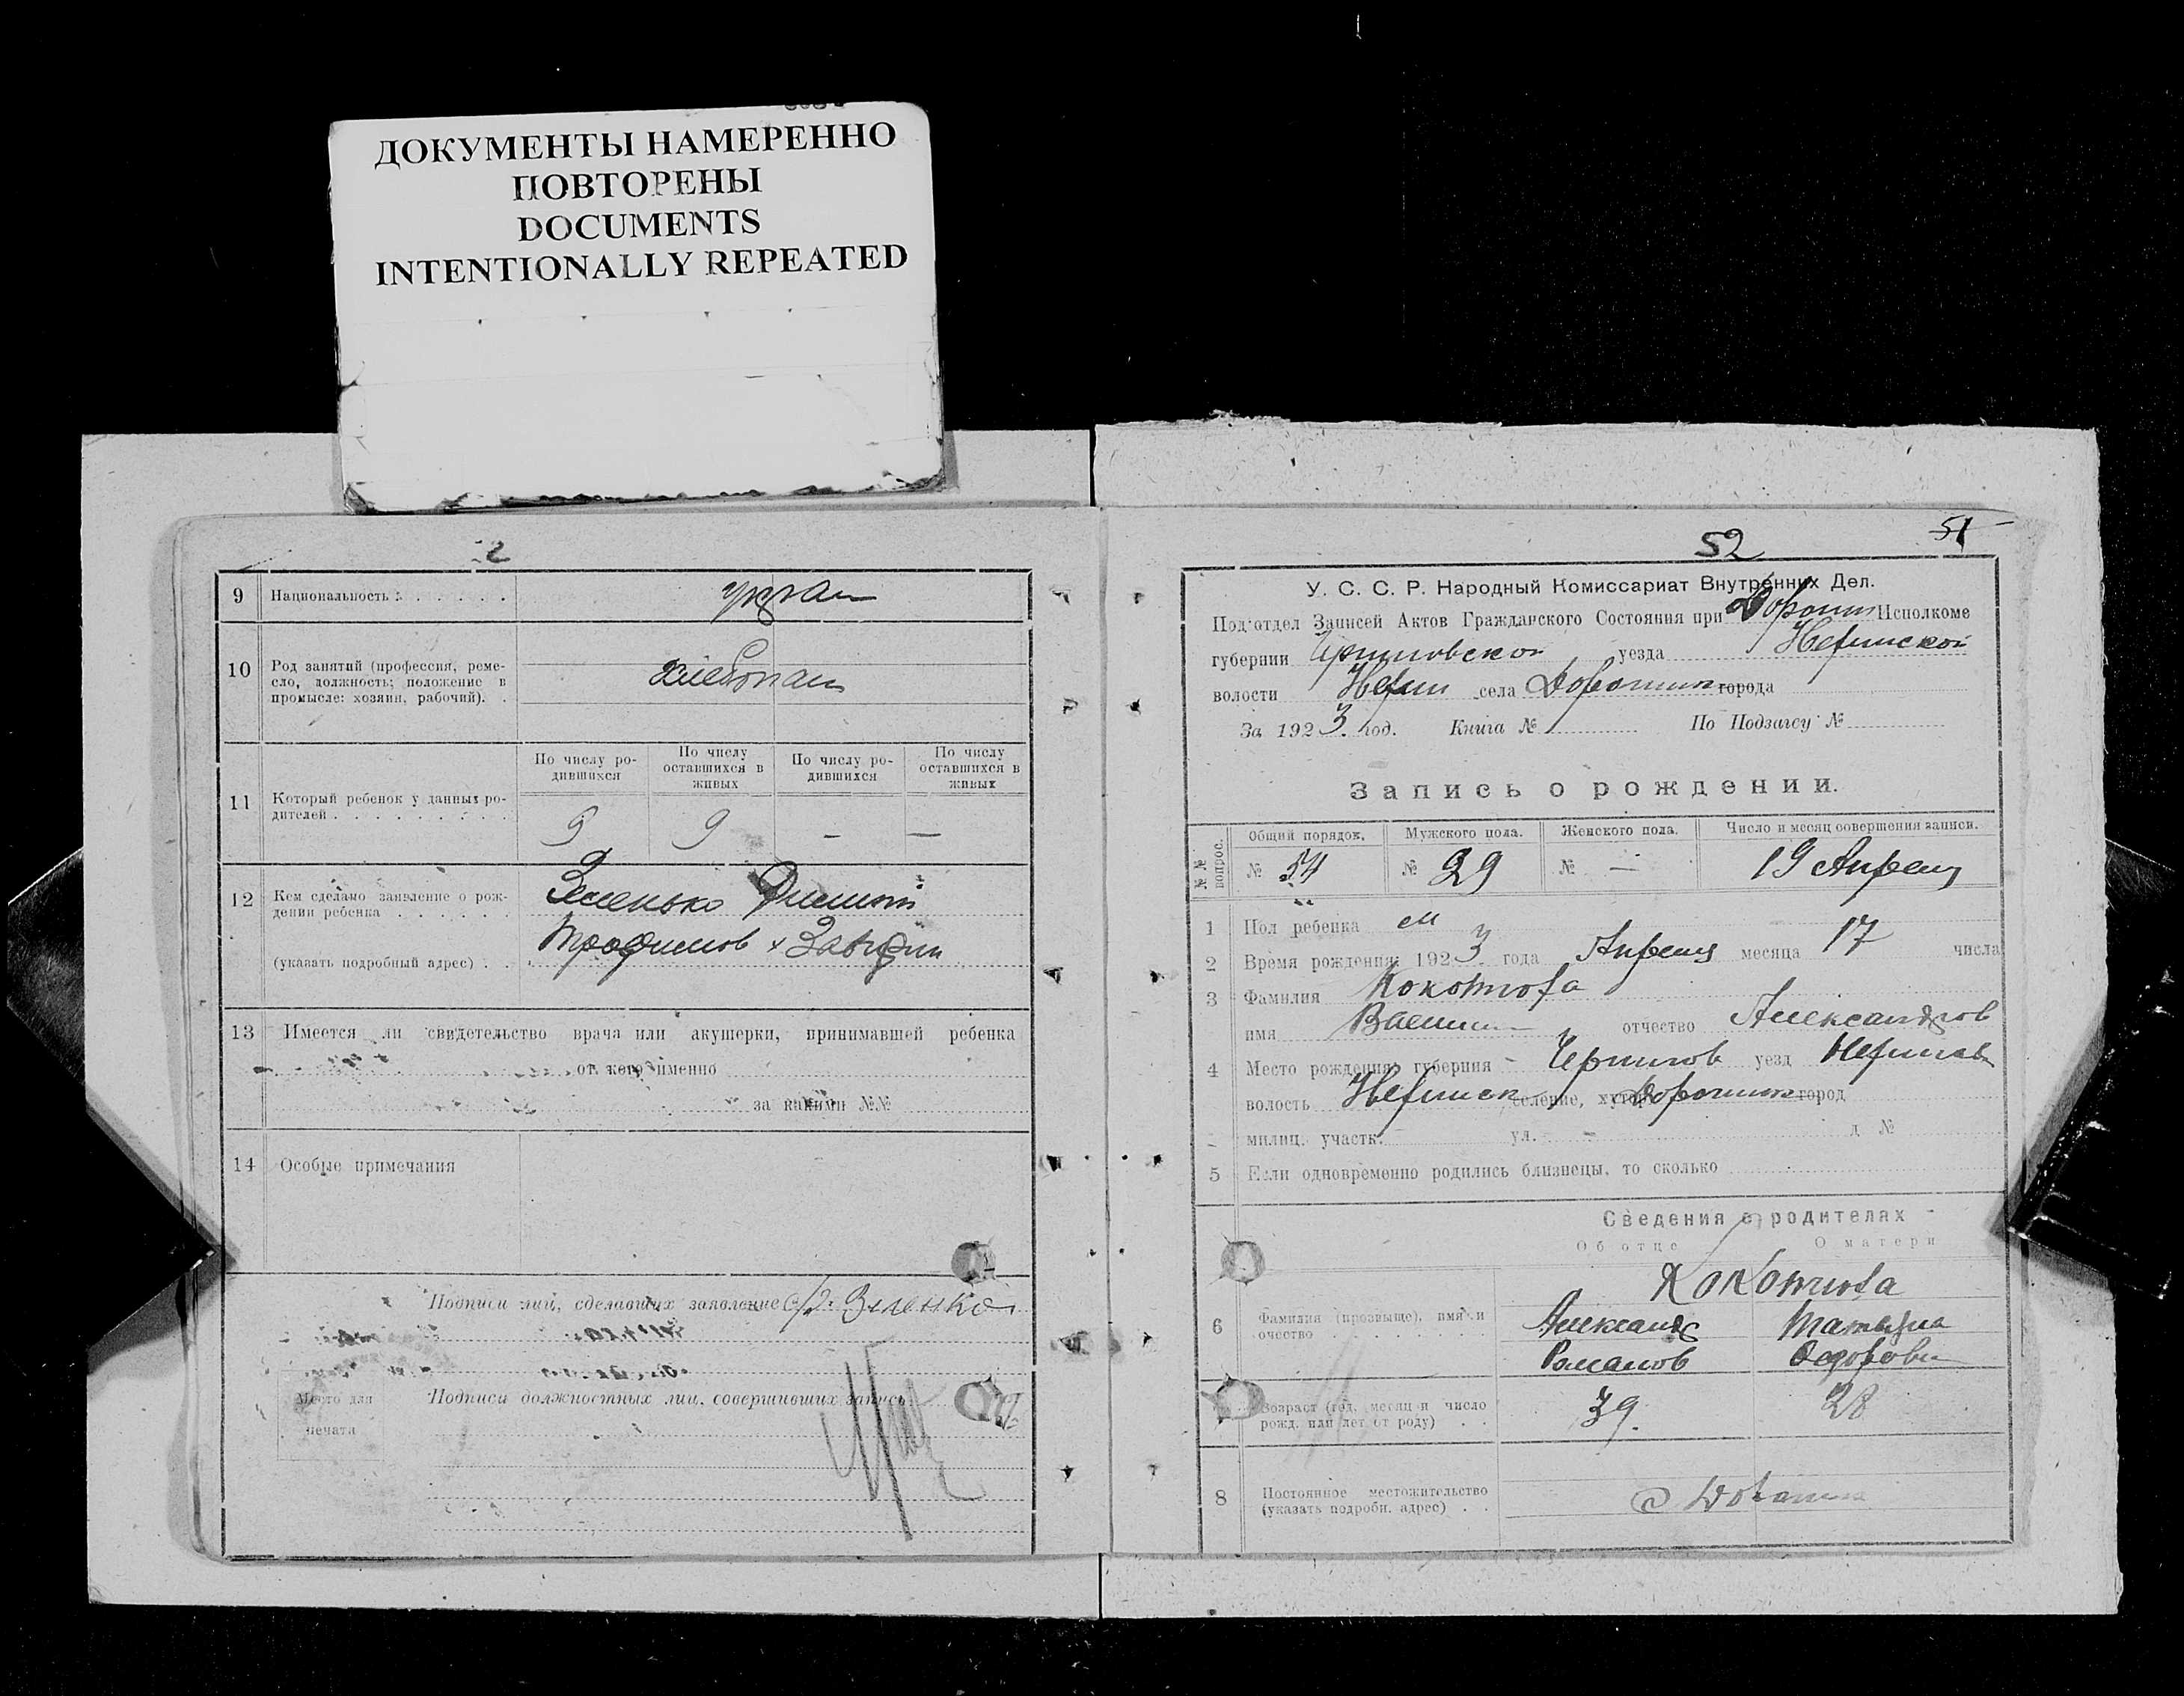 ДОКУМЕНТЫ НАМЕРЕННО
ПОВТОРЕНЫ
DOCUMENTS
INTENTIONALLY REPEATED
2
9 Национальность
10 Род занятий (профессия, реме-
сло, должность; положение в
промысле: хозяин, рабочий).
хлебопаш
11 Который ребенок у данных ро-
дителей
По числу ро-
дившихся
По числу
оставшихся в
живых
По числу ро-
дившихся
По числу
оставшихся в
живых
9 9 — —
12 Кем сделано заявление о рож-
дении ребенка
Зеленько
(указать подробный адрес)
Трофимов
13 Имеется ли свидетельство врача или акушерки, принимавшей ребенка
от кого именно
за какими №№
14 Особые примечания
Подписи лиц, сделавших заявление Зеленко
Место для
печати
Подписи должностных лиц, совершивших запись
52 51
У. С. С. Р. Народный Комиссариат Внутренних Дел.
Под'отдел Записей Актов Гражданского Состояния при Дорогин Исполкоме
губернии Черниговской уезда Нежинской
волости Нежин села Дорогин города
За 1923 год. Книга № По Подзагсу №
Запись о рождении.
№№ вопрос.
Общий порядок. Мужского пола. Женского пола. Число и месяц совершения записи.
№ 54 № 29 № — 19 Апреля
1 Пол ребенка м
2 Время рождения: 1923 года Апреля месяца 17 числа
3 Фамилия Кокотюха
имя отчество Александров
4 Место рождения: губерния Чернигов уезд
волость Нежинск селение, хутор Дорогин город
милиц. участк. ул. д №
5 Если одновременно родились близнецы, то сколько
Сведения о родителях
Об отце О матери
6 Фамилия (прозвище), имя и
очество
Кокотюха
Александр Татьяна
Романов Федоровн
Возраст (год, месяц и число
рожд. или лет от роду)
39. 28
8 Постоянное местожительство
(указать подробн. адрес)